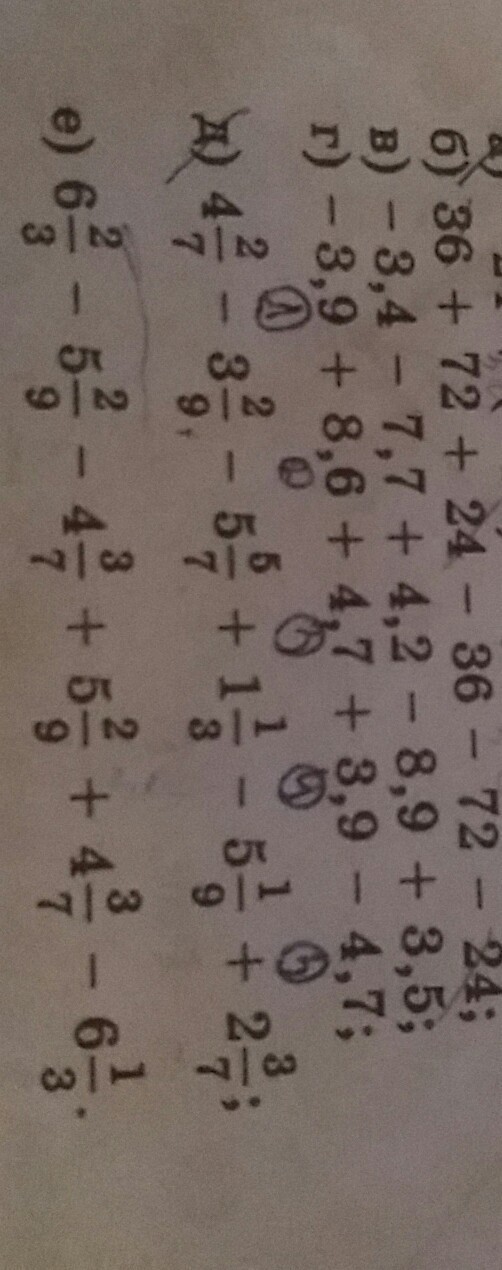 б) 36 + 72 + 24 − 36 − 72 − 24;
в) − 3,4 − 7,7 + 4,2 − 8,9 + 3,5;
г) − 3,9 + 8,6 + 4,7 + 3,9 − 4,7;
д) 4 2/7 − 3 2/9 − 5 5/7 + 1 1/3 − 5 1/9 + 2 3/7;
е) 6 2/3 − 5 2/9 − 4 3/7 + 5 2/9 + 4 3/7 − 6 1/3.